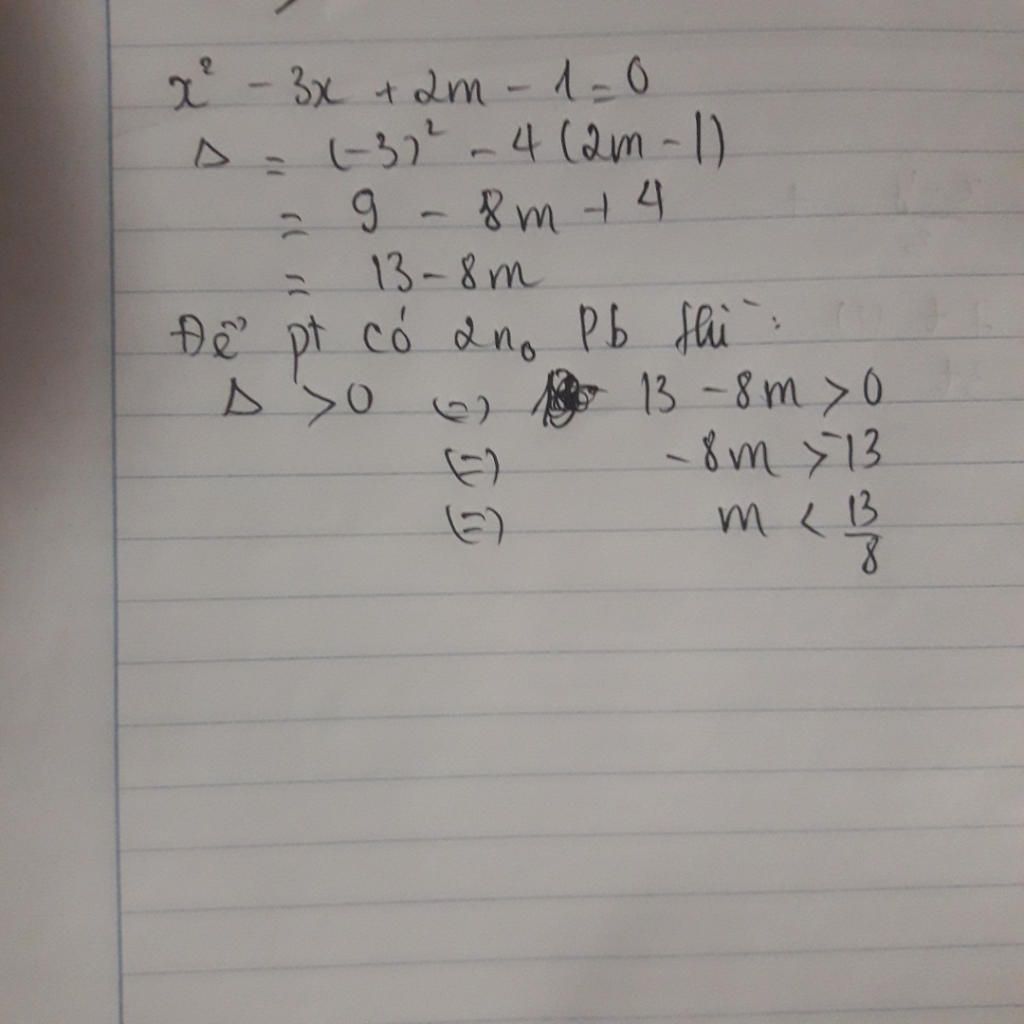 x² - 3x + 2m - 1 = 0
Δ = (-3)² - 4 (2m - 1)
= 9 - 8m + 4
= 13 - 8m
Để pt có 2 n₀ Pb thì :
Δ > 0 (=) 13 - 8m > 0
(=) - 8m > -13
(=) m < 13/8